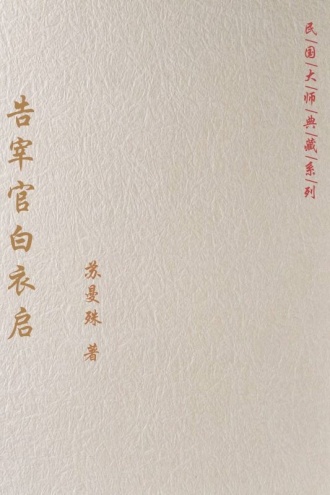 民|国|大|师|典|藏|系|列
告宰官白衣启
苏曼殊 著